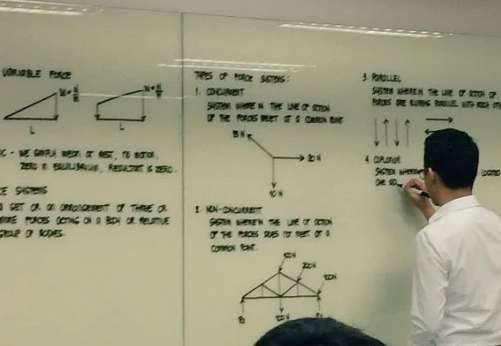 VARIABLE FORCE
L
L
ZERO IN EQUILIBRIUM, RESULTANT IS ZERO.
CE SYSTEMS
A SET OR AN ARRANGEMENT OF THREE OR
MORE FORCES ACTING ON A BODY OR RELATIVE
GROUP OF BODIES.
TYPES OF FORCE SYSTEMS:
1. CONCURRENT
SYSTEM WHERE IN THE LINE OF ACTION
OF THE FORCES MEET AT A COMMON POINT
15N
20N
10N
2. NON-CONCURRENT
SYSTEM WHERE IN THE LINE OF ACTION
OF THE FORCES DOES NOT MEET AT A
COMMON POINT.
3. PARALLEL
SYSTEM WHERE IN THE LINE OF ACTION OF
FORCES ARE RUNNING PARALLEL WITH EACH OTH
4. COPLANAR
SYSTEM
LOCATED
ONE